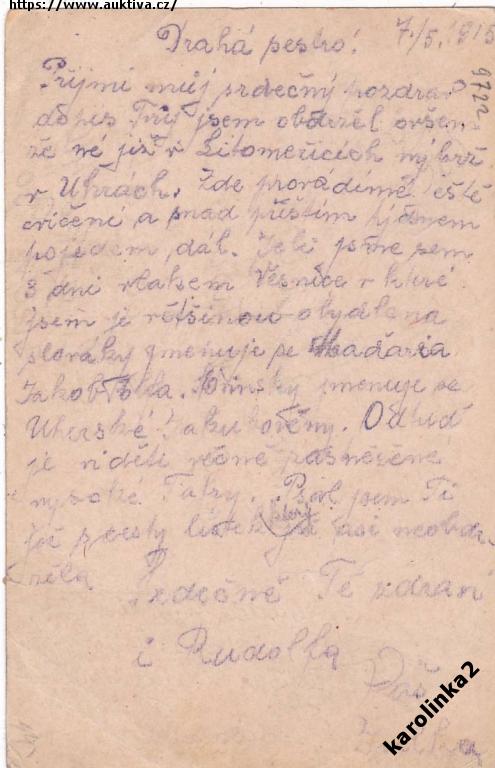 https://www.auktiva.cz/
Drahá sestro! 7./5. 1915
9722
Přijmi můj srdečný pozdrav
dopis Tvůj jsem obdržel ovšem
že né již v Litoměřicích nýbrž
v Uhrách. Zde provádíme ještě
cvičení a snad příštím týdnem
pojedem dál. Jeli jsme sem
3 dni vlakem Vesnice v které
jsem je většinou obydlena
slováky jmenuje se Maďaria
Jakobfalla. slovinsky jmenuje se
Uherské Jakubověny. Odtud
je viděti věčně zasněžené
vysoké Tatry. Psal jsem Ti
již z cesty lístek který asi neobdr-
žela Srdečně Tě zdraví
i Rudolfa
Váš
karolinka2